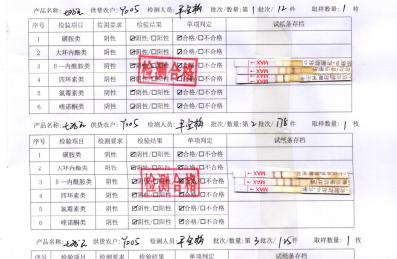 产品名称: 供货农户: Y005 检测人员: 批次/数量: 第1批次/12件 取样数量: 1 枚
序号 检验项目 检测要求 检验结果 单项判定 试纸条存档
1 磺胺类 阴性 ☑阴性/☐阳性 ☑合格/☐不合格
2 大环内酯类 阴性 ☑阴性/☐阳性 ☑合格/☐不合格
3 β一内酰胺类 阴性 ☑阴性/☐阳性 ☑合格/☐不合格
4 四环素类 阴性 ☑阴性/☐阳性 ☑合格/☐不合格
5 氯霉素类 阴性 ☑阴性/☐阳性 ☑合格/☐不合格
6 喹诺酮类 阴性 ☑阴性/☐阳性 ☑合格/☐不合格
检测合格
MAX
MAX
产品名称: 供货农户: Y005 检测人员: 批次/数量: 第2批次/178件 取样数量: 1 枚
序号 检验项目 检测要求 检验结果 单项判定 试纸条存档
1 磺胺类 阴性 ☑阴性/☐阳性 ☑合格/☐不合格
2 大环内酯类 阴性 ☑阴性/☐阳性 ☑合格/☐不合格
3 β一内酰胺类 阴性 ☑阴性/☐阳性 ☑合格/☐不合格
4 四环素类 阴性 ☑阴性/☐阳性 ☑合格/☐不合格
5 氯霉素类 阴性 ☑阴性/☐阳性 ☑合格/☐不合格
6 喹诺酮类 阴性 ☑阴性/☐阳性 ☑合格/☐不合格
检测合格
MAX
MAX
产品名称: 供货农户: Y005 检测人员: 批次/数量: 第3批次/ 件 取样数量: 1 枚
序号 检验项目 检测要求 检验结果 单项判定 试纸条存档